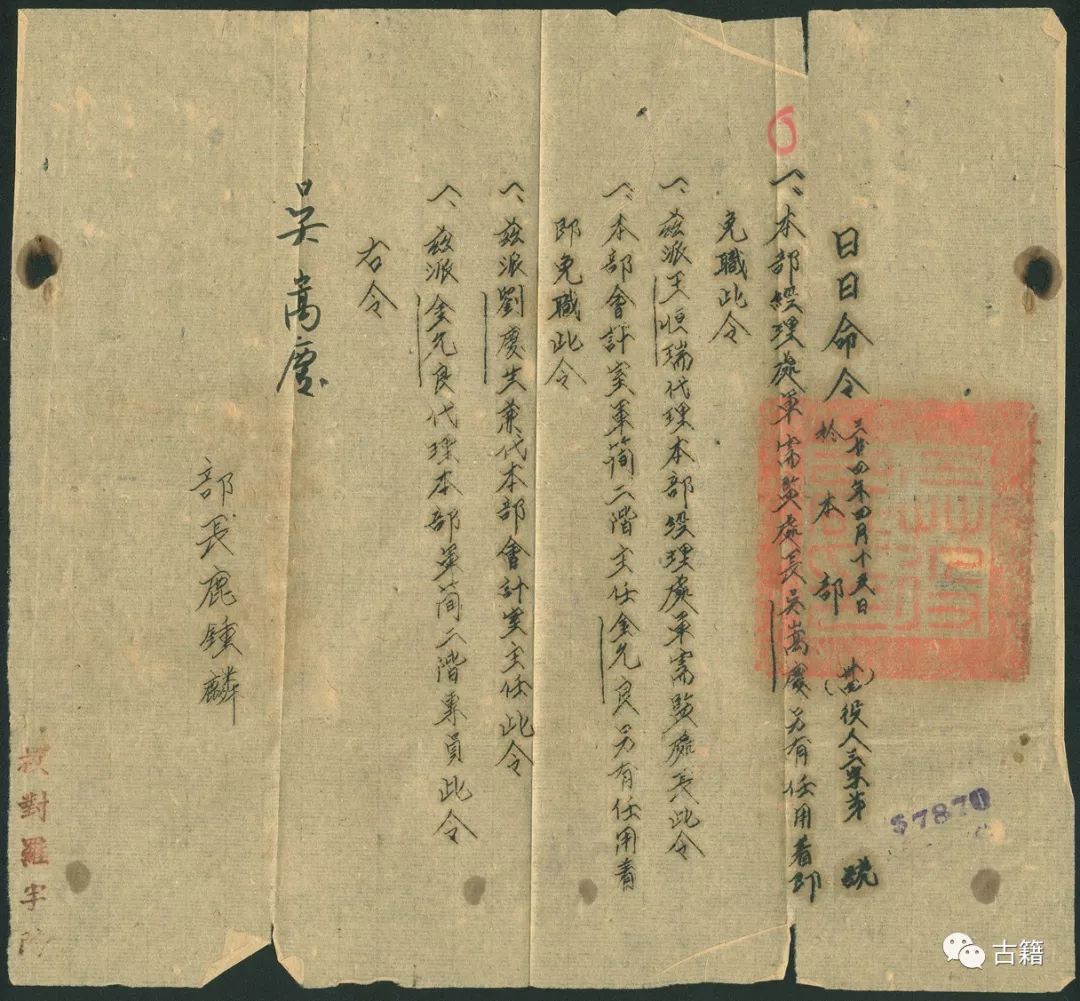 日日命令 三十四年四月十五日 於本部 (卅四)役人三字第 號
57870
一、本部經理處軍需監處長吳嵩慶另有任用着即
免職此令
一、茲派王恒瑞代理本部經理處軍需監處長此令
一、本部會計室軍簡二階主任金允良另有任用着
即免職此令
一、茲派劉慶生兼代本部會計室主任此令
一、茲派金允良代理本部軍簡二階專員此令
右令
吳嵩慶
部長鹿鍾麟
校對羅宇
古籍